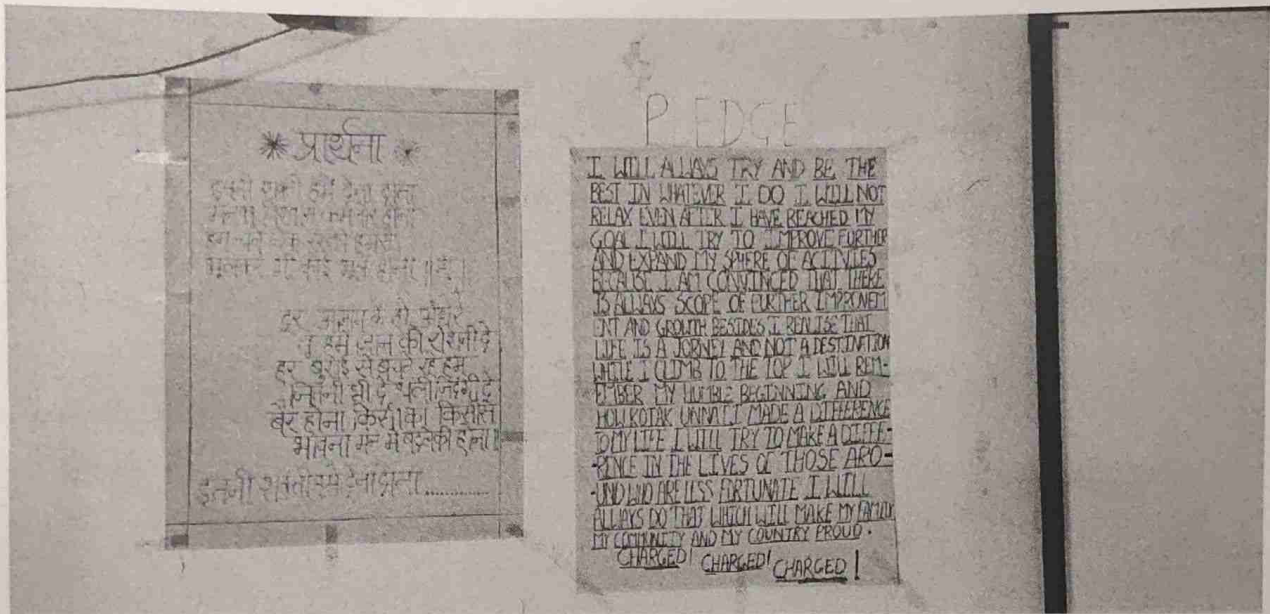 * प्रार्थना *
हमे देना दाता
हम चले
दूर अज्ञान के हो
तू हमे ज्ञान की रोशनी दे
हर बुराई से बचके रहे हम
जितनी भी दे भली जिंदगी दे
बैर होना किसीका किसीसे
भावना मन मे बदलेकी होना
इतनी शक्ती हमे देना दाता
PLEDGE
I WILL ALWAYS TRY AND BE THE
BEST IN WHATEVER I DO I WILL NOT
RELAX EVEN AFTER I HAVE REACHED MY
GOAL I WILL TRY TO IMPROVE FURTHER
AND EXPAND MY SPHERE OF ACTIVIES
BECAUSE I AM CONVINCED THAT THERE
IS ALWAYS SCOPE OF FURTHER IMPROVEM
ENT AND GROWTH BESIDES I REALISE THAT
LIFE IS A JORNEY AND NOT A DESTINATION
WHILE I CLIMB TO THE TOP I WILL REM-
EMBER MY HUMBLE BEGINNING AND
HOW KOTAK UNNATI MADE A DIFFERENCE
TO MY LIFE I WILL TRY TO MAKE A DIFFE-
-RENCE IN THE LIVES OF THOSE ARO-
-UND WHO ARE LESS FORTUNATE I WILL
ALWAYS DO THAT WHICH WILL MAKE MY FAMILY
MY COMMUNITY AND MY COUNTRY PROUD.
CHARGED! CHARGED! CHARGED!